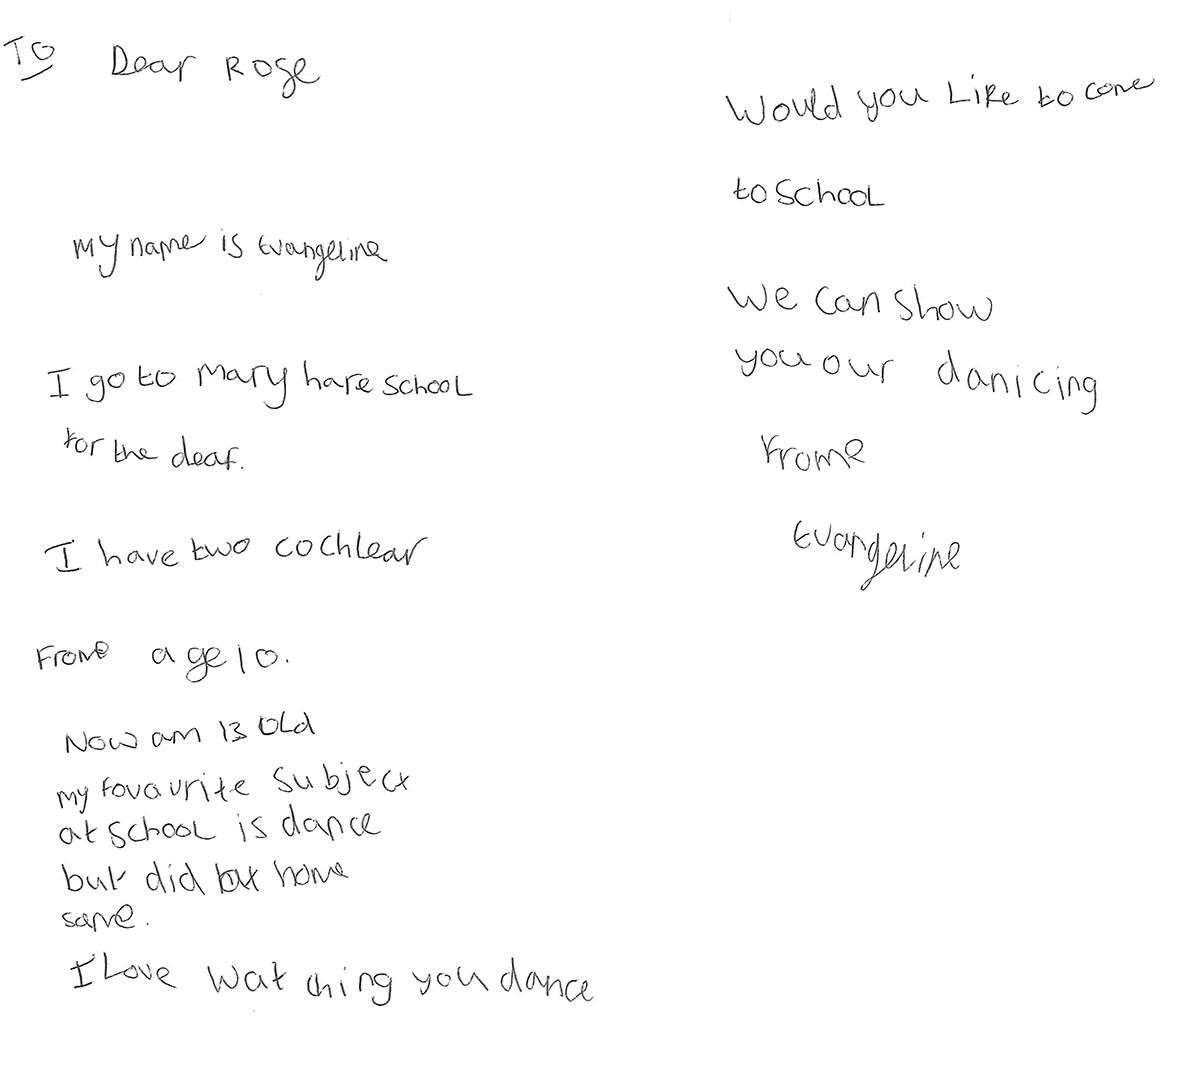 To Dear Rose
my name is Evangeline
I go to mary hare school
for the deaf.
I have two cochlear
Frome age 10.
Now am 13 old
my fovaurite subject
at school is dance
but did home
same.
I Love wat ching you dance
Would you Like to come
to school
we can show
you our danicing
Frome
Evangeline